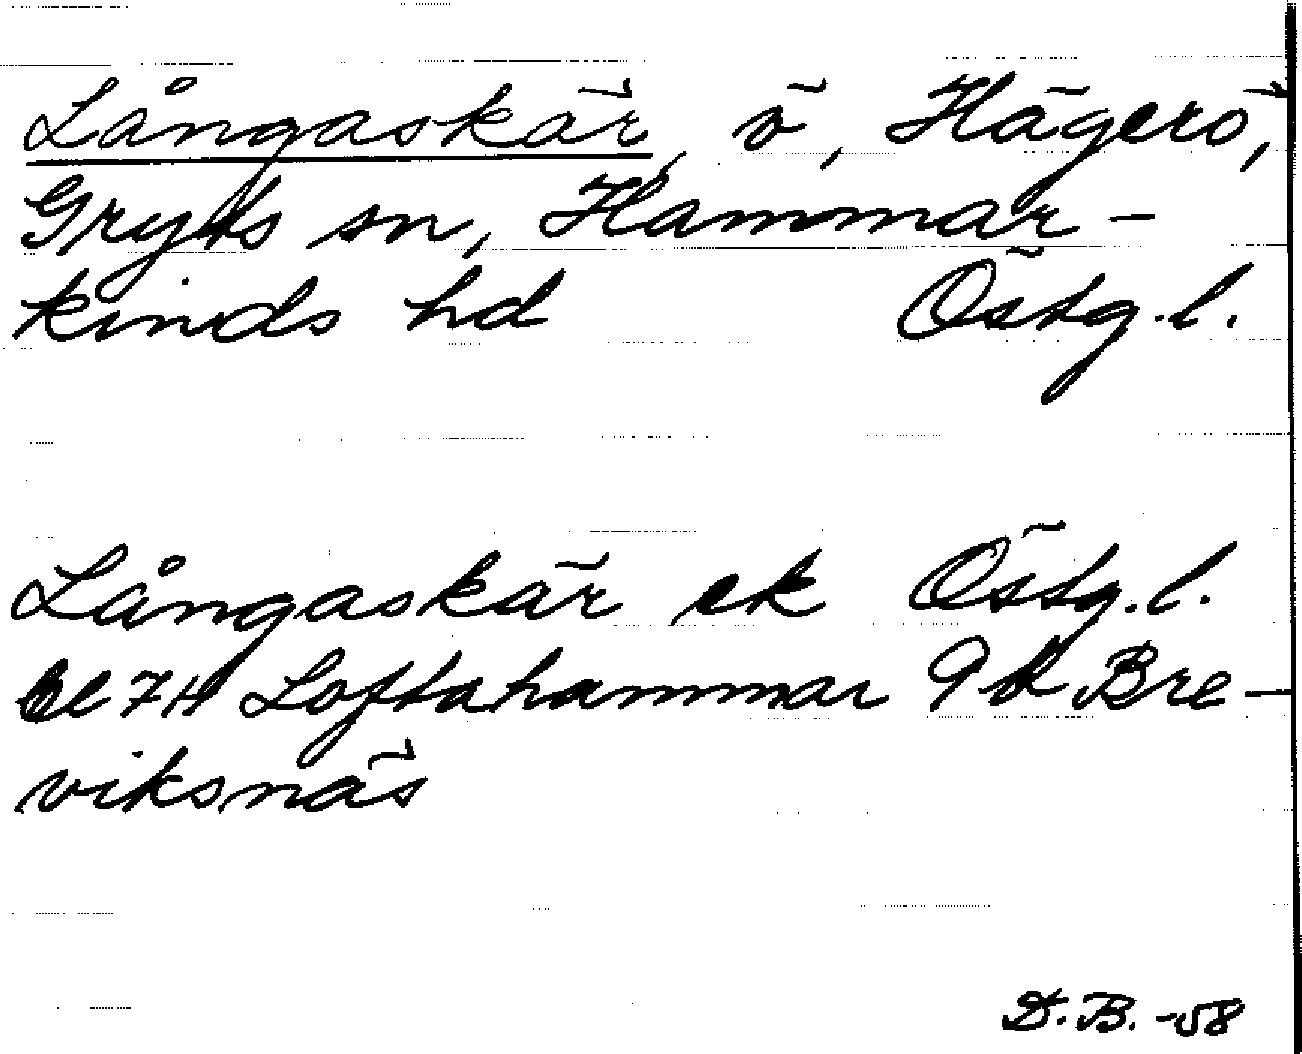 Långaskär, ö, Hägerö,
Gryts sn, Hammar-
kinds hd Östg.l.
Långaskär ek Östg.l.
bl 7H Loftahammar 9d Bre-
viksnäs
D.B. -58